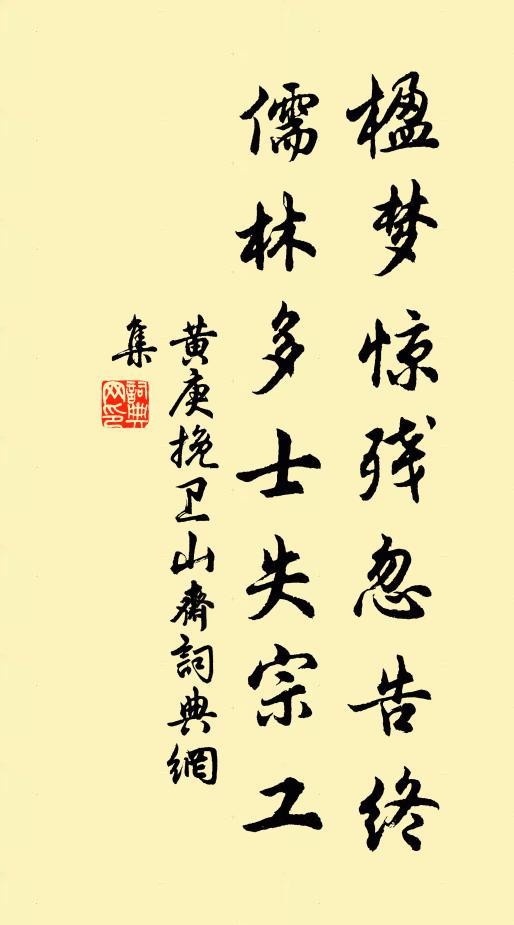 楹梦惊残忽告终
儒林多士失宗工
黄庚挽卫山斋詞典網
集
詞典网印